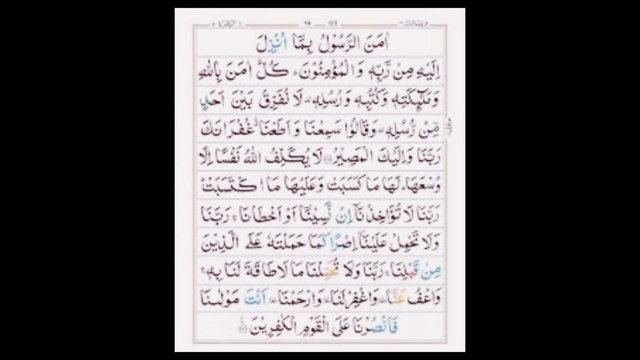 اٰمَنَ الرَّسُوْلُ بِمَاۤ اُنْزِلَ
اِلَيْهِ مِنْ رَّبِّهٖ وَالْمُؤْمِنُوْنَ ؕ كُلٌّ اٰمَنَ بِاللّٰهِ
وَمَلٰٓئِكَتِهٖ وَكُتُبِهٖ وَرُسُلِهٖ ۟ لَا نُفَرِّقُ بَيْنَ اَحَدٍ
مِّنْ رُّسُلِهٖ ۟ وَقَالُوْا سَمِعْنَا وَاَطَعْنَا ۗ غُفْرَانَكَ
رَبَّنَا وَاِلَيْكَ الْمَصِيْرُ لَا يُكَلِّفُ اللّٰهُ نَفْسًا اِلَّا
وُسْعَهَا ؕ لَهَا مَا كَسَبَتْ وَعَلَيْهَا مَا اكْتَسَبَتْ ؕ
رَبَّنَا لَا تُؤَاخِذْنَاۤ اِنْ نَّسِيْنَاۤ اَوْ اَخْطَاْنَا ۚ رَبَّنَا
وَلَا تَحْمِلْ عَلَيْنَاۤ اِصْرًا كَمَا حَمَلْتَهٗ عَلَى الَّذِيْنَ
مِنْ قَبْلِنَا ۚ رَبَّنَا وَلَا تُحَمِّلْنَا مَا لَا طَاقَةَ لَنَا بِهٖ ۚ
وَاعْفُ عَنَّا ۥ وَاغْفِرْ لَنَا ۥ وَارْحَمْنَا ۥ اَنْتَ مَوْلٰىنَا
فَانْصُرْنَا عَلَى الْقَوْمِ الْكٰفِرِيْنَ